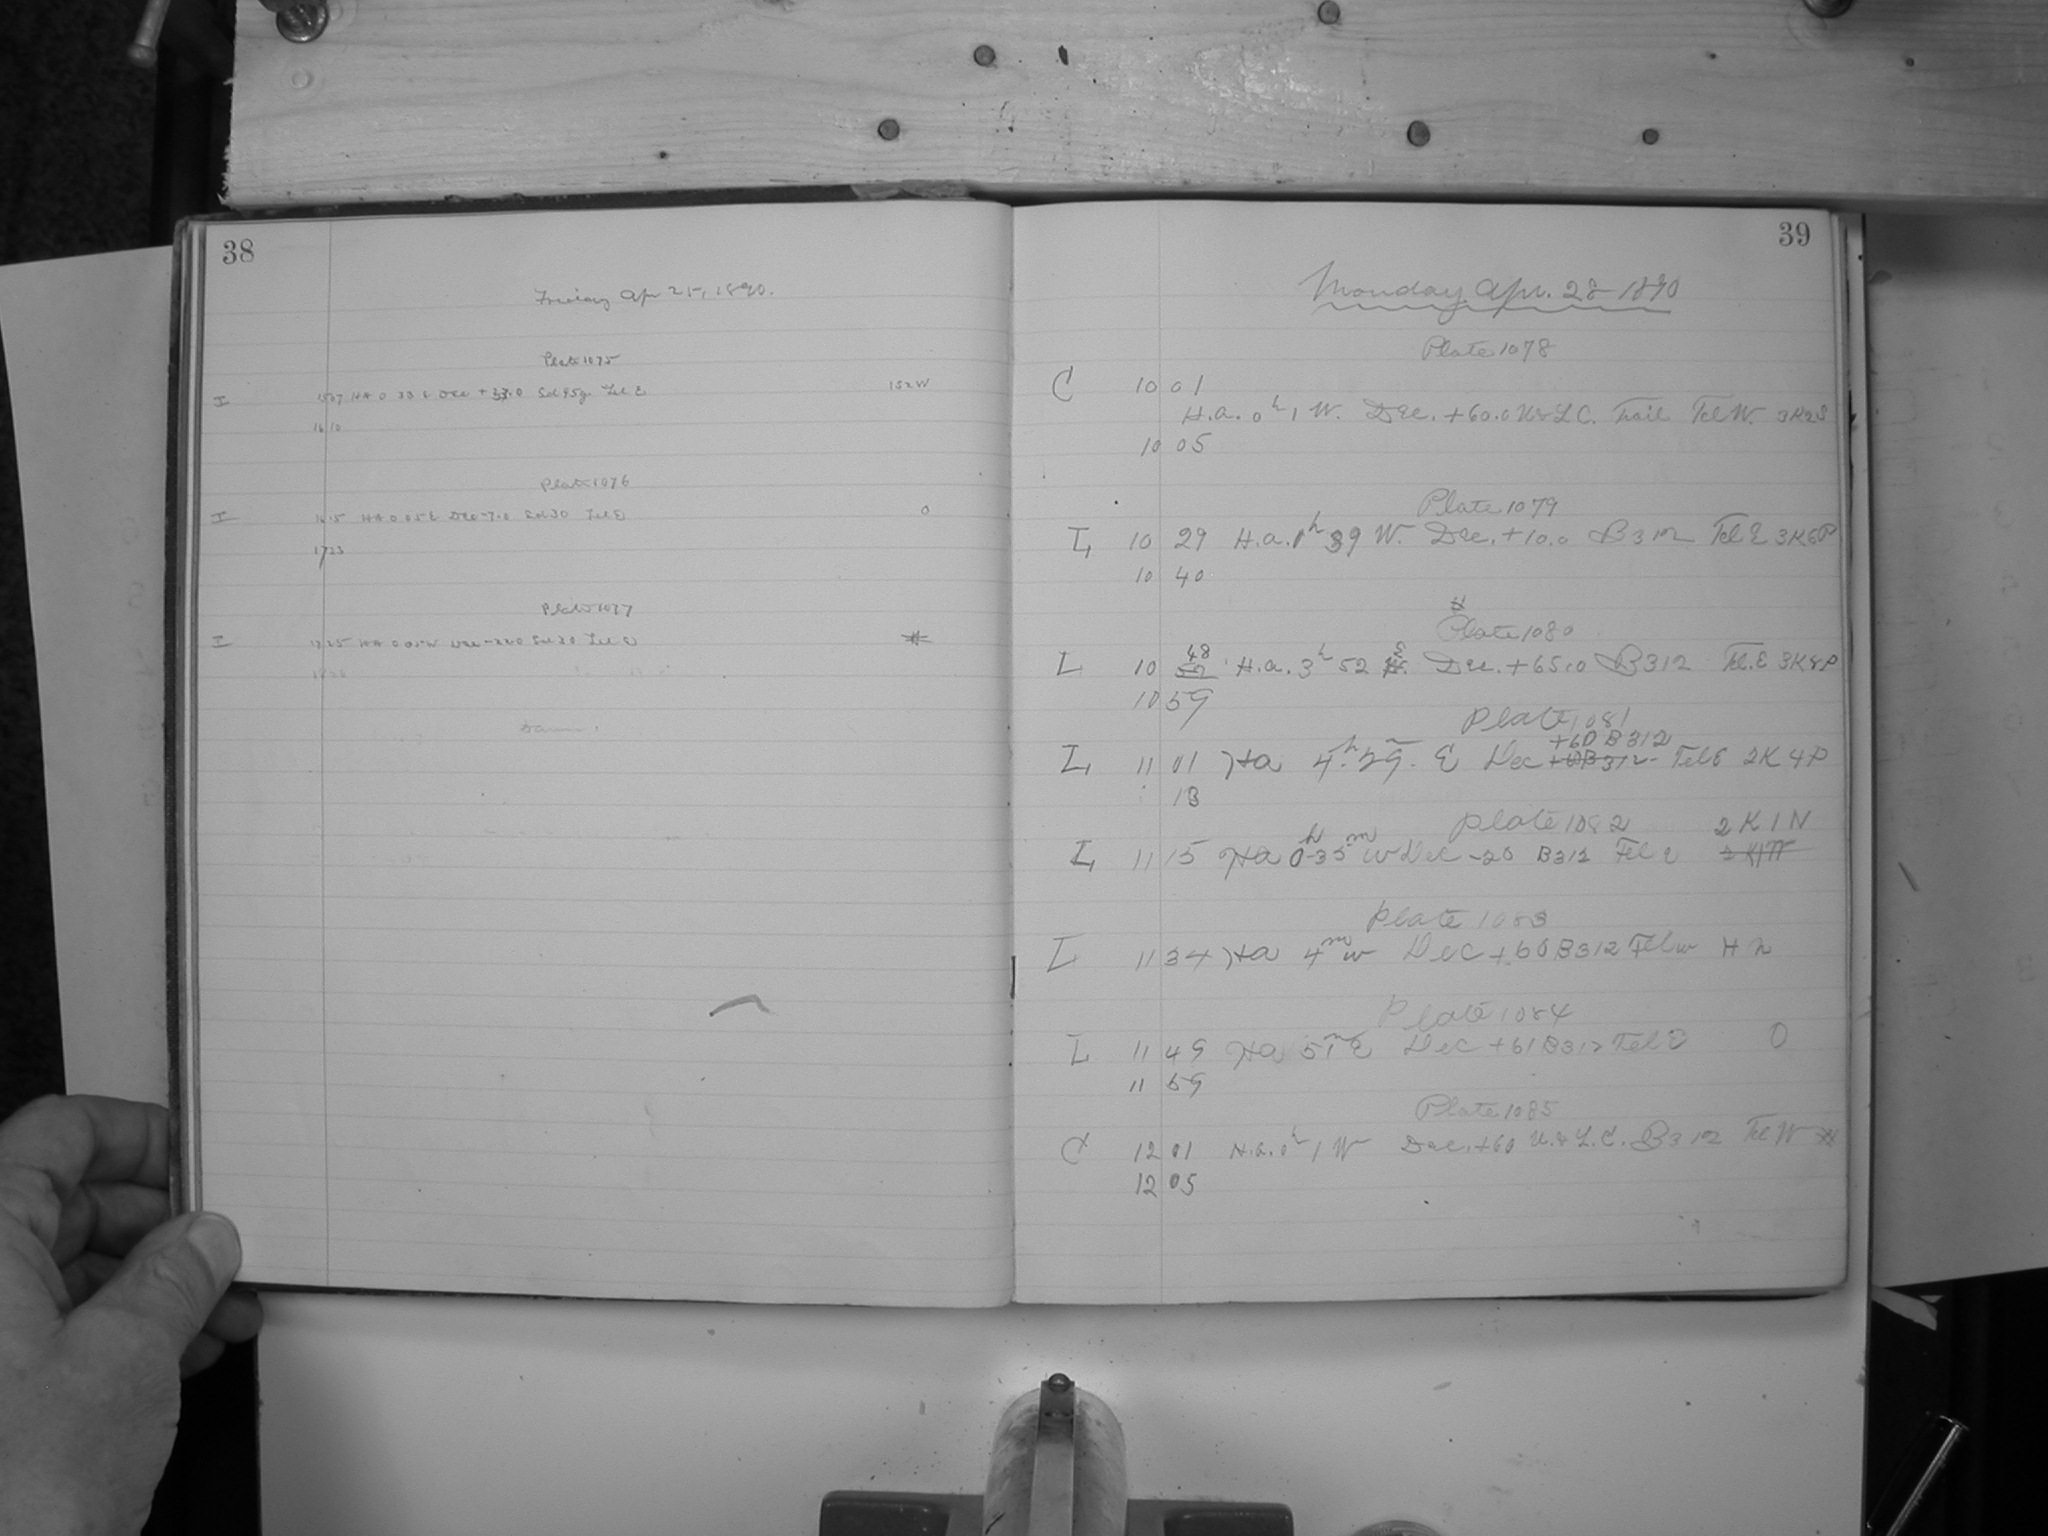 38
Friday Apr 25, 1890.
Plate 1075
I 1507 HA 0 33 E Dec +33.0 Tel E 152W
16 10
Plate 1076
I HA 0 05 E Dec -7.0 Sol 30 Tel E 0
17 23
Plate 1077
I 17 25 HA 0 05 W Dec Sol 30 Tel E
39
Monday Apr. 28 1890
Plate 1078
C 10 01
H.a. 0h 1 W. Dec. +60.0 U&L C. Trail Tel W. 3K2S
10 05
Plate 1079
L 10 29 H.a. 1h 39 W. Dec. +10.0 B312 Tel E 3K6P
10 40
Plate 1080
48
L 10 52 H.a. 3h 52 E Dec. +65.0 B312 Tel. E 3K8P
10 59
Plate 1081
+60 B312
L 11 01 Ha 4h 29m E Dec Tel E 2K 4P
13
Plate 1082 2K1N
L 11 15 Ha 0h 35m W Dec -20 B312 Tel E 2K1N
Plate 1083
L 11 34 Ha 4m w Dec +60 B312 Tel w
Plate 1084
L 11 49 Ha 51m E Dec +61 B312 Tel E 0
11 59
Plate 1085
C 12 01 H.a. 0h 1 W Dec. +60 U.&L.C. B312 Tel W
12 05